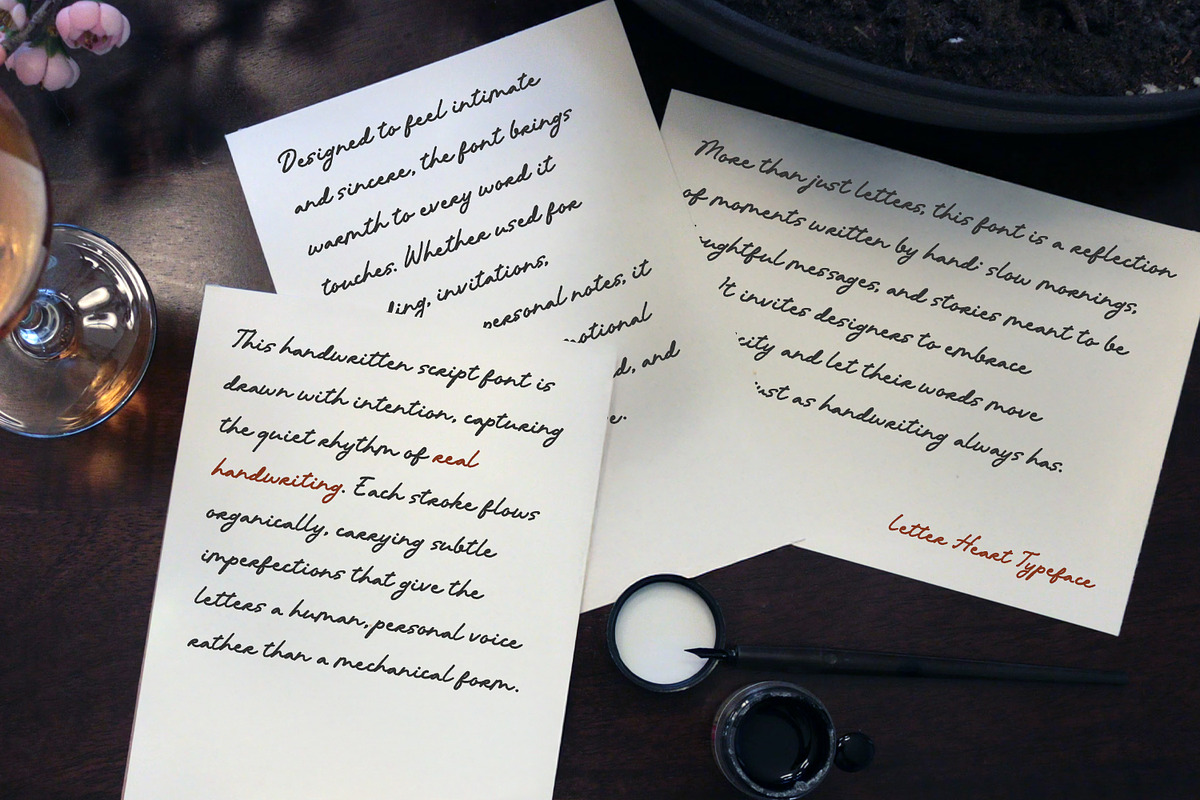 Designed to feel intimate
and sincere, the font brings
warmth to every word it
touches. Whether used for
invitations,
personal notes, it
and
This handwritten script font is
drawn with intention, capturing
the quiet rhythm of real
handwriting. Each stroke flows
organically, carrying subtle
imperfections that give the
letters a human, personal voice
rather than a mechanical form.
More than just letters, this font is a reflection
of moments written by hand: slow mornings,
messages, and stories meant to be
It invites designers to embrace
and let their words move
as handwriting always has.
Letter Heart Typeface